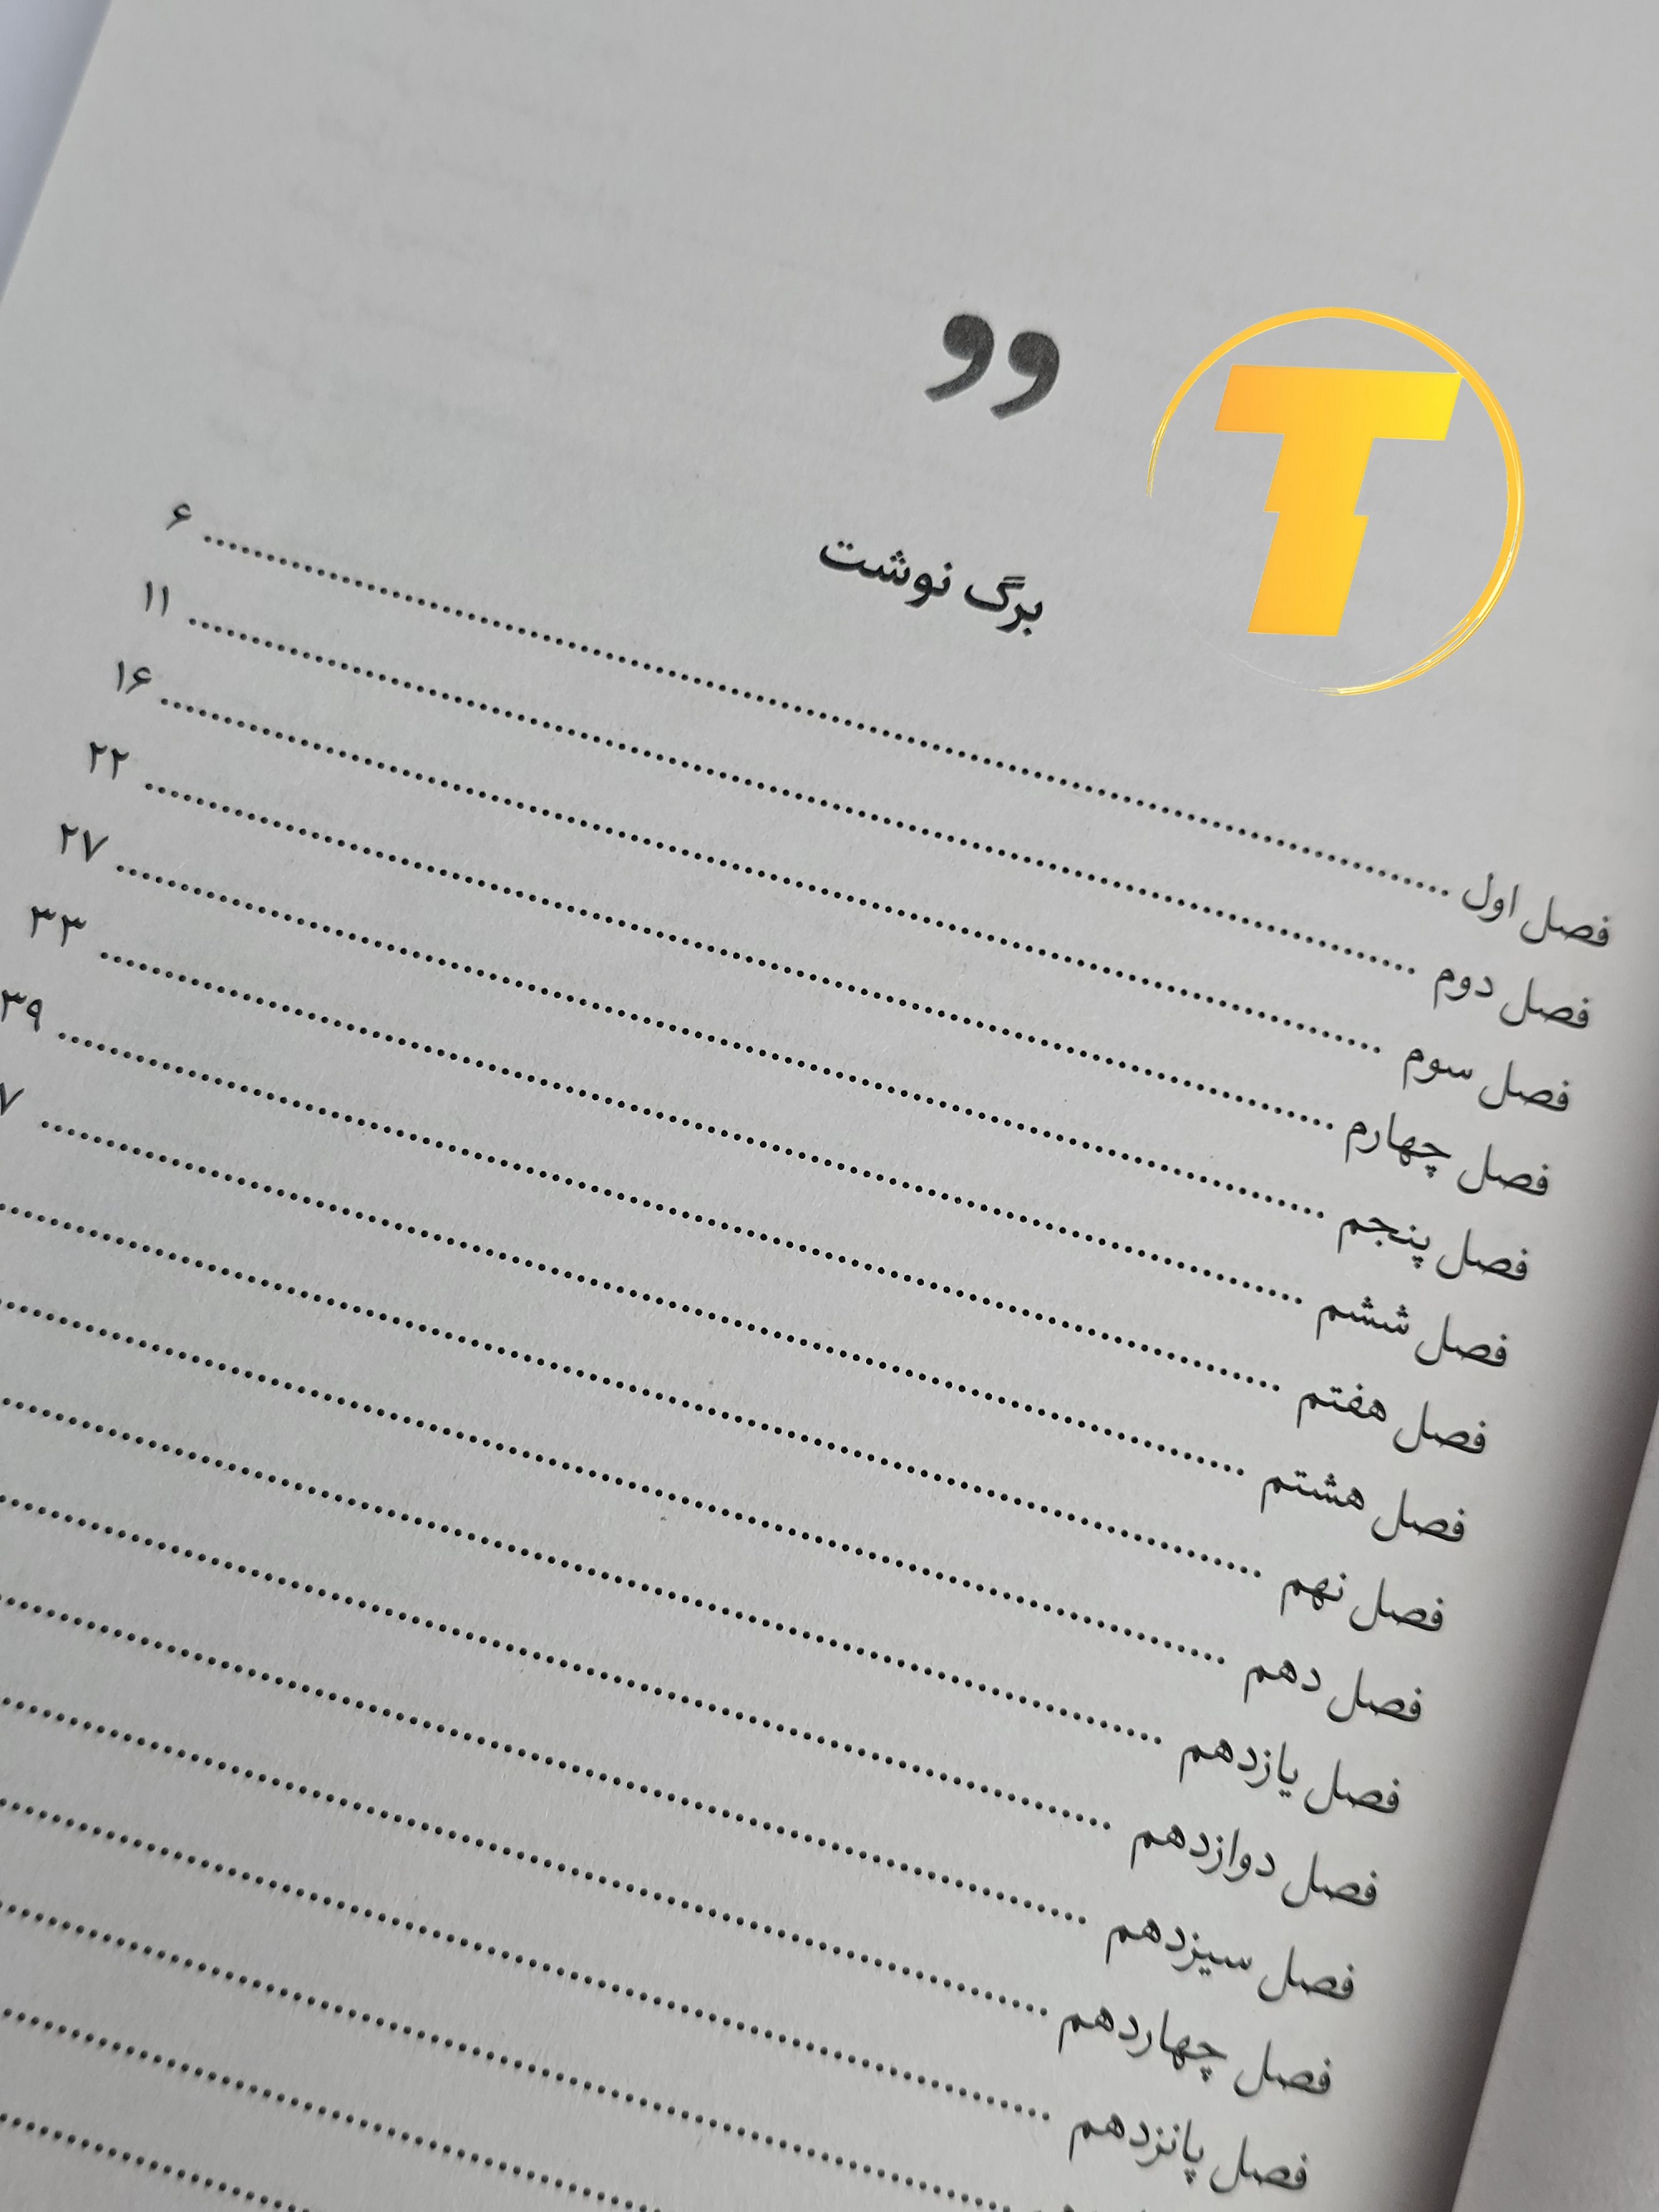 ,,
T
برگ نوشت
فصل اول ........ ۶
فصل دوم ........ ۱۱
فصل سوم ........ ۱۶
فصل چهارم ........ ۲۲
فصل پنجم ........ ۲۷
فصل ششم ........ ۳۳
فصل هفتم ........ ۳۹
فصل هشتم ........ ۷
فصل نهم ........
فصل دهم ........
فصل یازدهم ........
فصل دوازدهم ........
فصل سیزدهم ........
فصل چهاردهم ........
فصل پانزدهم ........